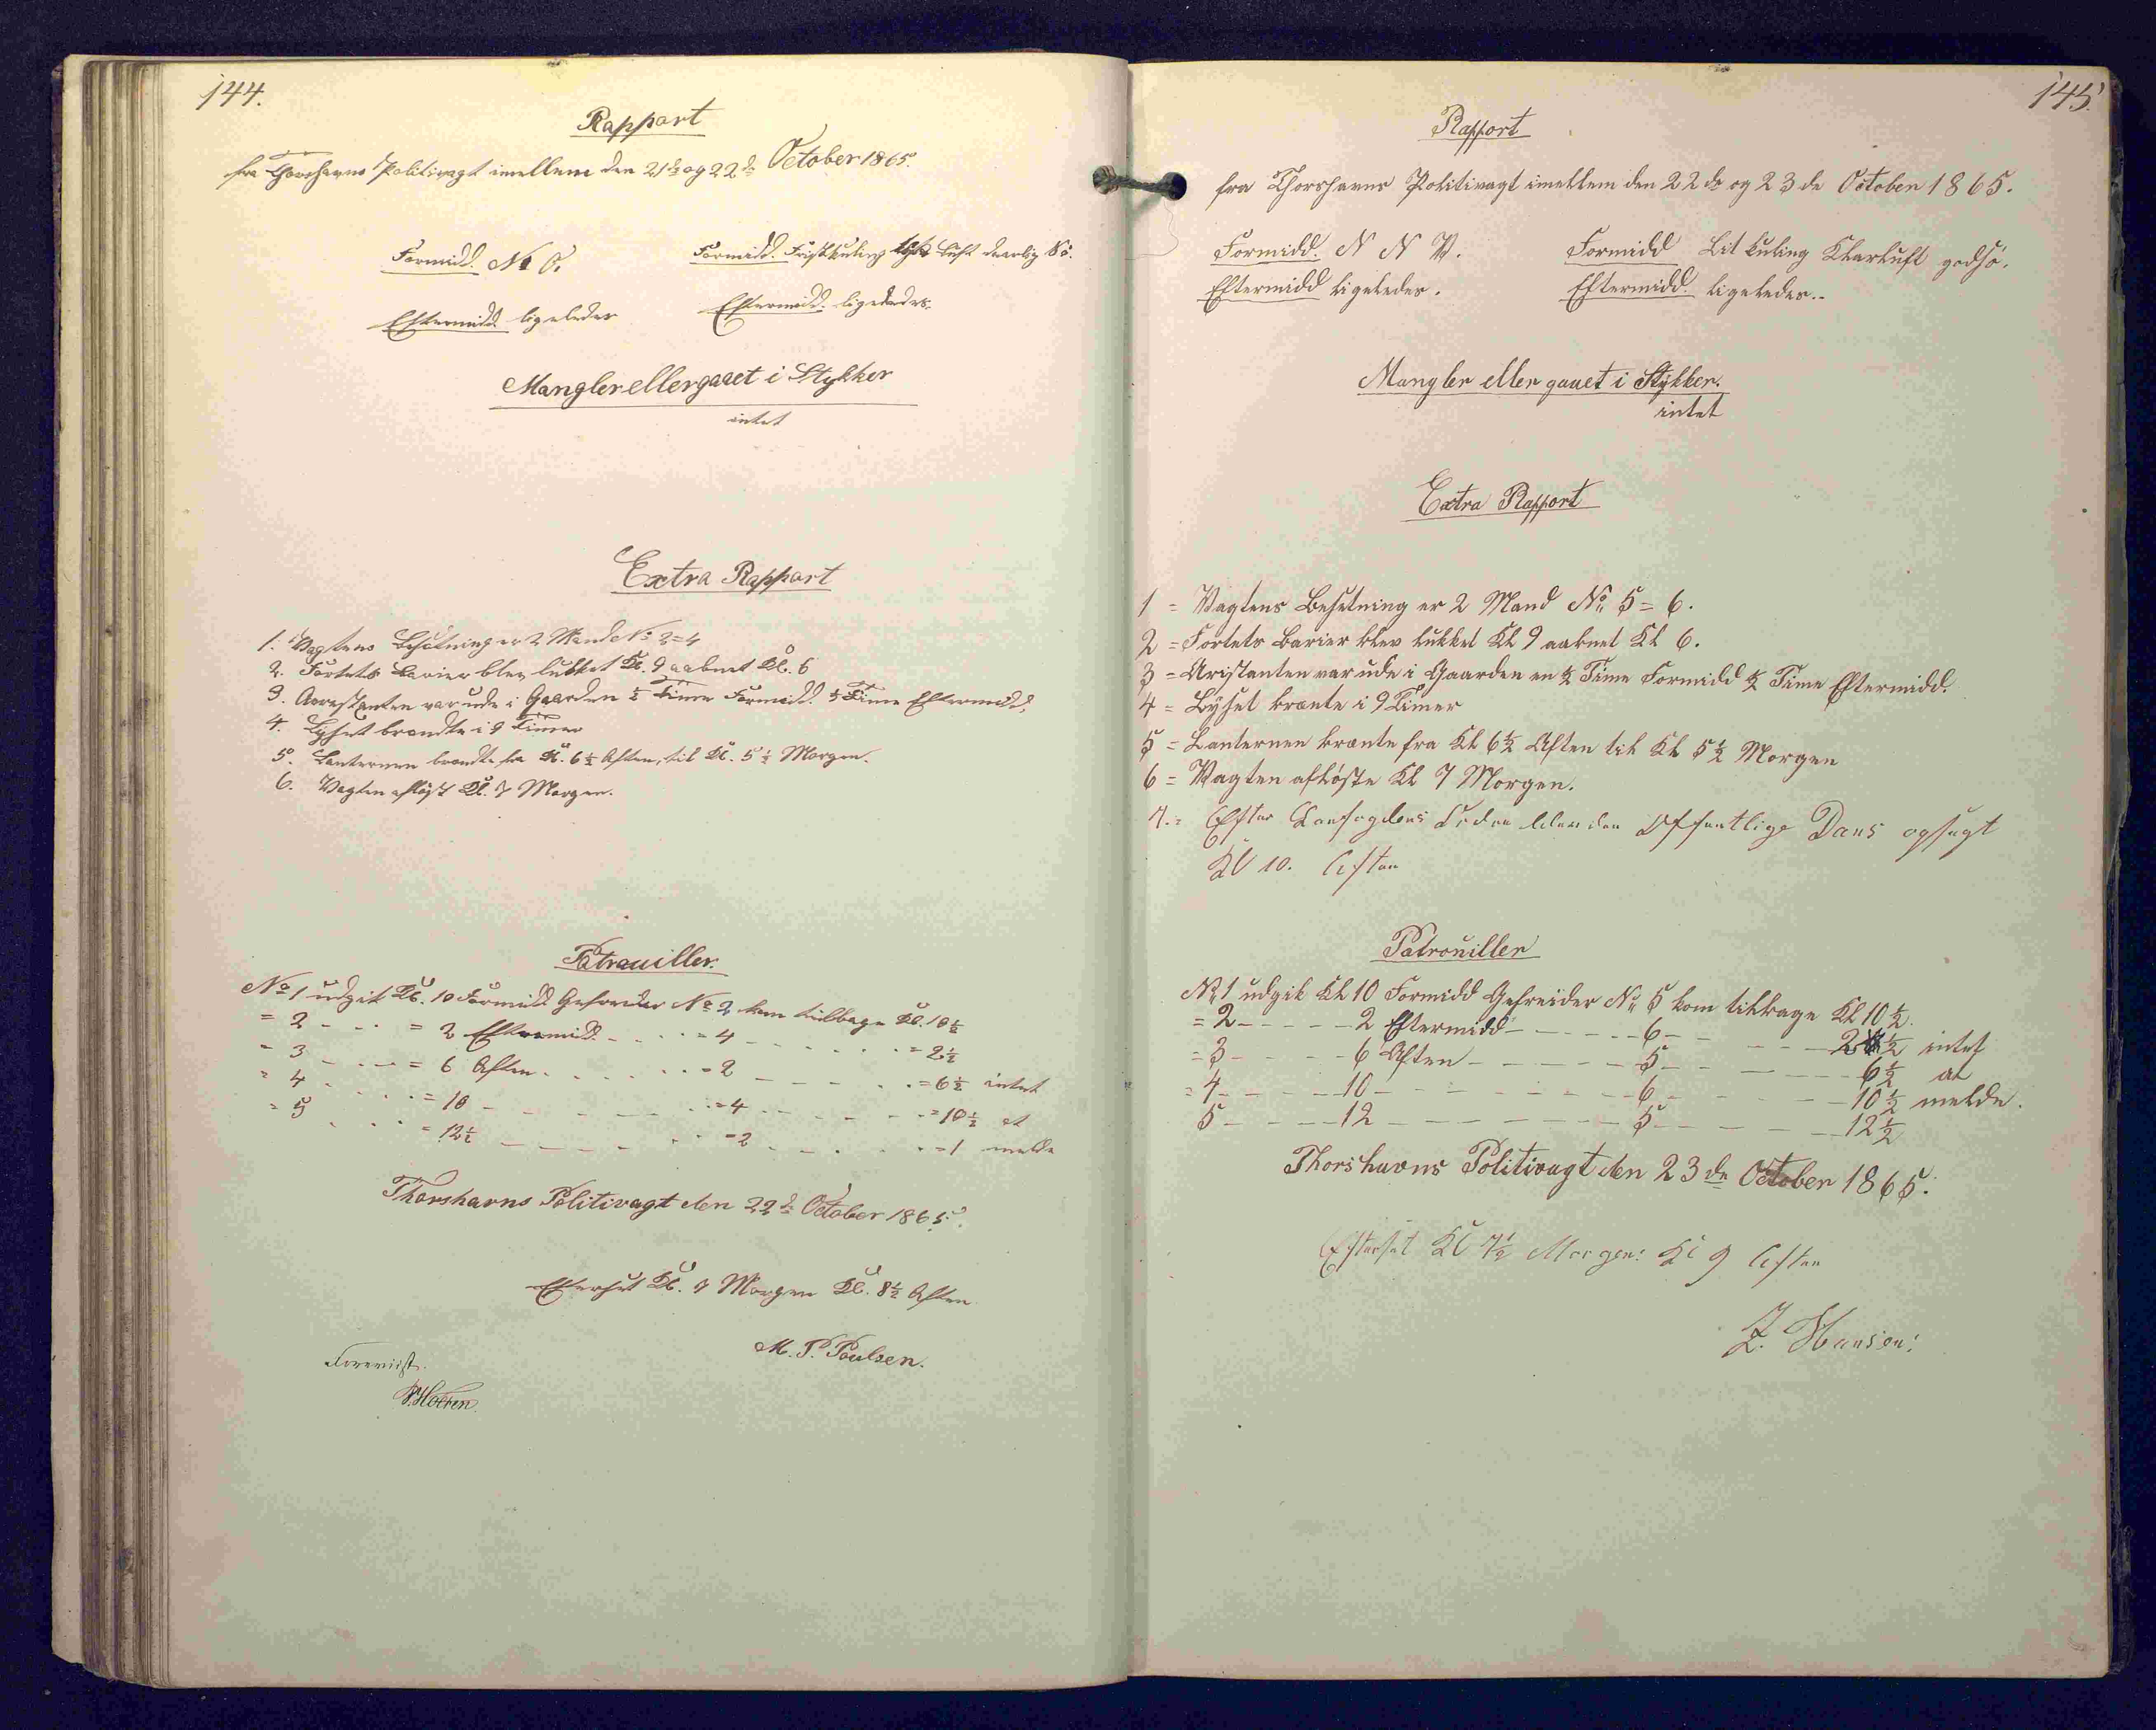 144.
Rappart
fra Thorshavns Politivagt imellem den 21de og 22de October 1865.
Formidd. N O. Formidd. Friskkuling tyk Luft daarlig Sö.
Eftermidd. ligeledes Eftermidd. ligeledes.
Mangler eller gaaet i Stykker
intet
Extra Rappart
1. Vagtens Besætning er 2 Mand No 2=4
2. Fortets Barier blev lukket Kl. 9 aabnet Kl. 6
3. Arrestanten var ude i Gaarden ½ Time Formidd. ½ Time Eftermidd.
4. Lyset brændte i 9 Timer
5. Lanternen brændte fra Kl. 6½ Aften, til Kl. 5½ Morgen.
6. Vagten afløst Kl. 7 Morgen.
Patrouiller.
No 1 udgik Kl. 10 Formidd Gefreider No 2 kom tilbage Kl. 10½
= 2 - - - = 2 Eftermidd. - - - = 4 - - - - = 2½
= 3 - - - = 6 Aften - - - - = 2 - - - - = 6½ intet
= 4 - - - = 10 - - - - = 4 - - - - = 10½ at
= 5 - - - = 12½ - - - - = 2 - - - - = 1 melde
Thorshavns Politivagt den 22de October 1865.
Efterset Kl. 7 Morgen Kl. 8½ Aften.
M. P. Poulsen.
Foreviist.
145.
Rapport
fra Thorshavns Politivagt imellem den 22de og 23de October 1865.
Formidd. N N V. Formidd Lit kuling Klarluft godsö.
Eftermidd ligeledes. Eftermidd. ligeledes..
Mangler eller gaaet i Stykker.
intet
Extra Rapport
1 = Vagtens Besetning er 2 Mand No 5 = 6.
2 = Fortets Barier blev lukket Kl 9 aabnet Kl 6.
3 = Aristanten var ude i Gaarden en ½ Time Formidd ½ Time Eftermidd.
4 = Lyset brænte i 9 Timer
5 = Lanternen brænte fra Kl 6½ Aften til Kl 5½ Morgen
6 = Vagten aflöste Kl 7 Morgen.
7. = Efter Lanfogdens Orden blev den Offentlige Dans opsagt
Kl 10. Aften
Patrouiller
No 1 udgik Kl 10 Formidd Gefreider No 5 kom tilbage Kl 10½.
= 2 - - - - 2 Eftermidd - - - - 6 - - - - 2½ intet
= 3 - - - - 6 Aften - - - - 5 - - - - 6½ at
= 4 - - - - 10 - - - - 6 - - - - 10½ melde.
5 - - - - 12 - - - - 5 - - - - 12½
Thorshavns Politivagt den 23de October 1865.
Efterset Kl 7½ Morgen: Kl 9 Aften
Z. Hansen: